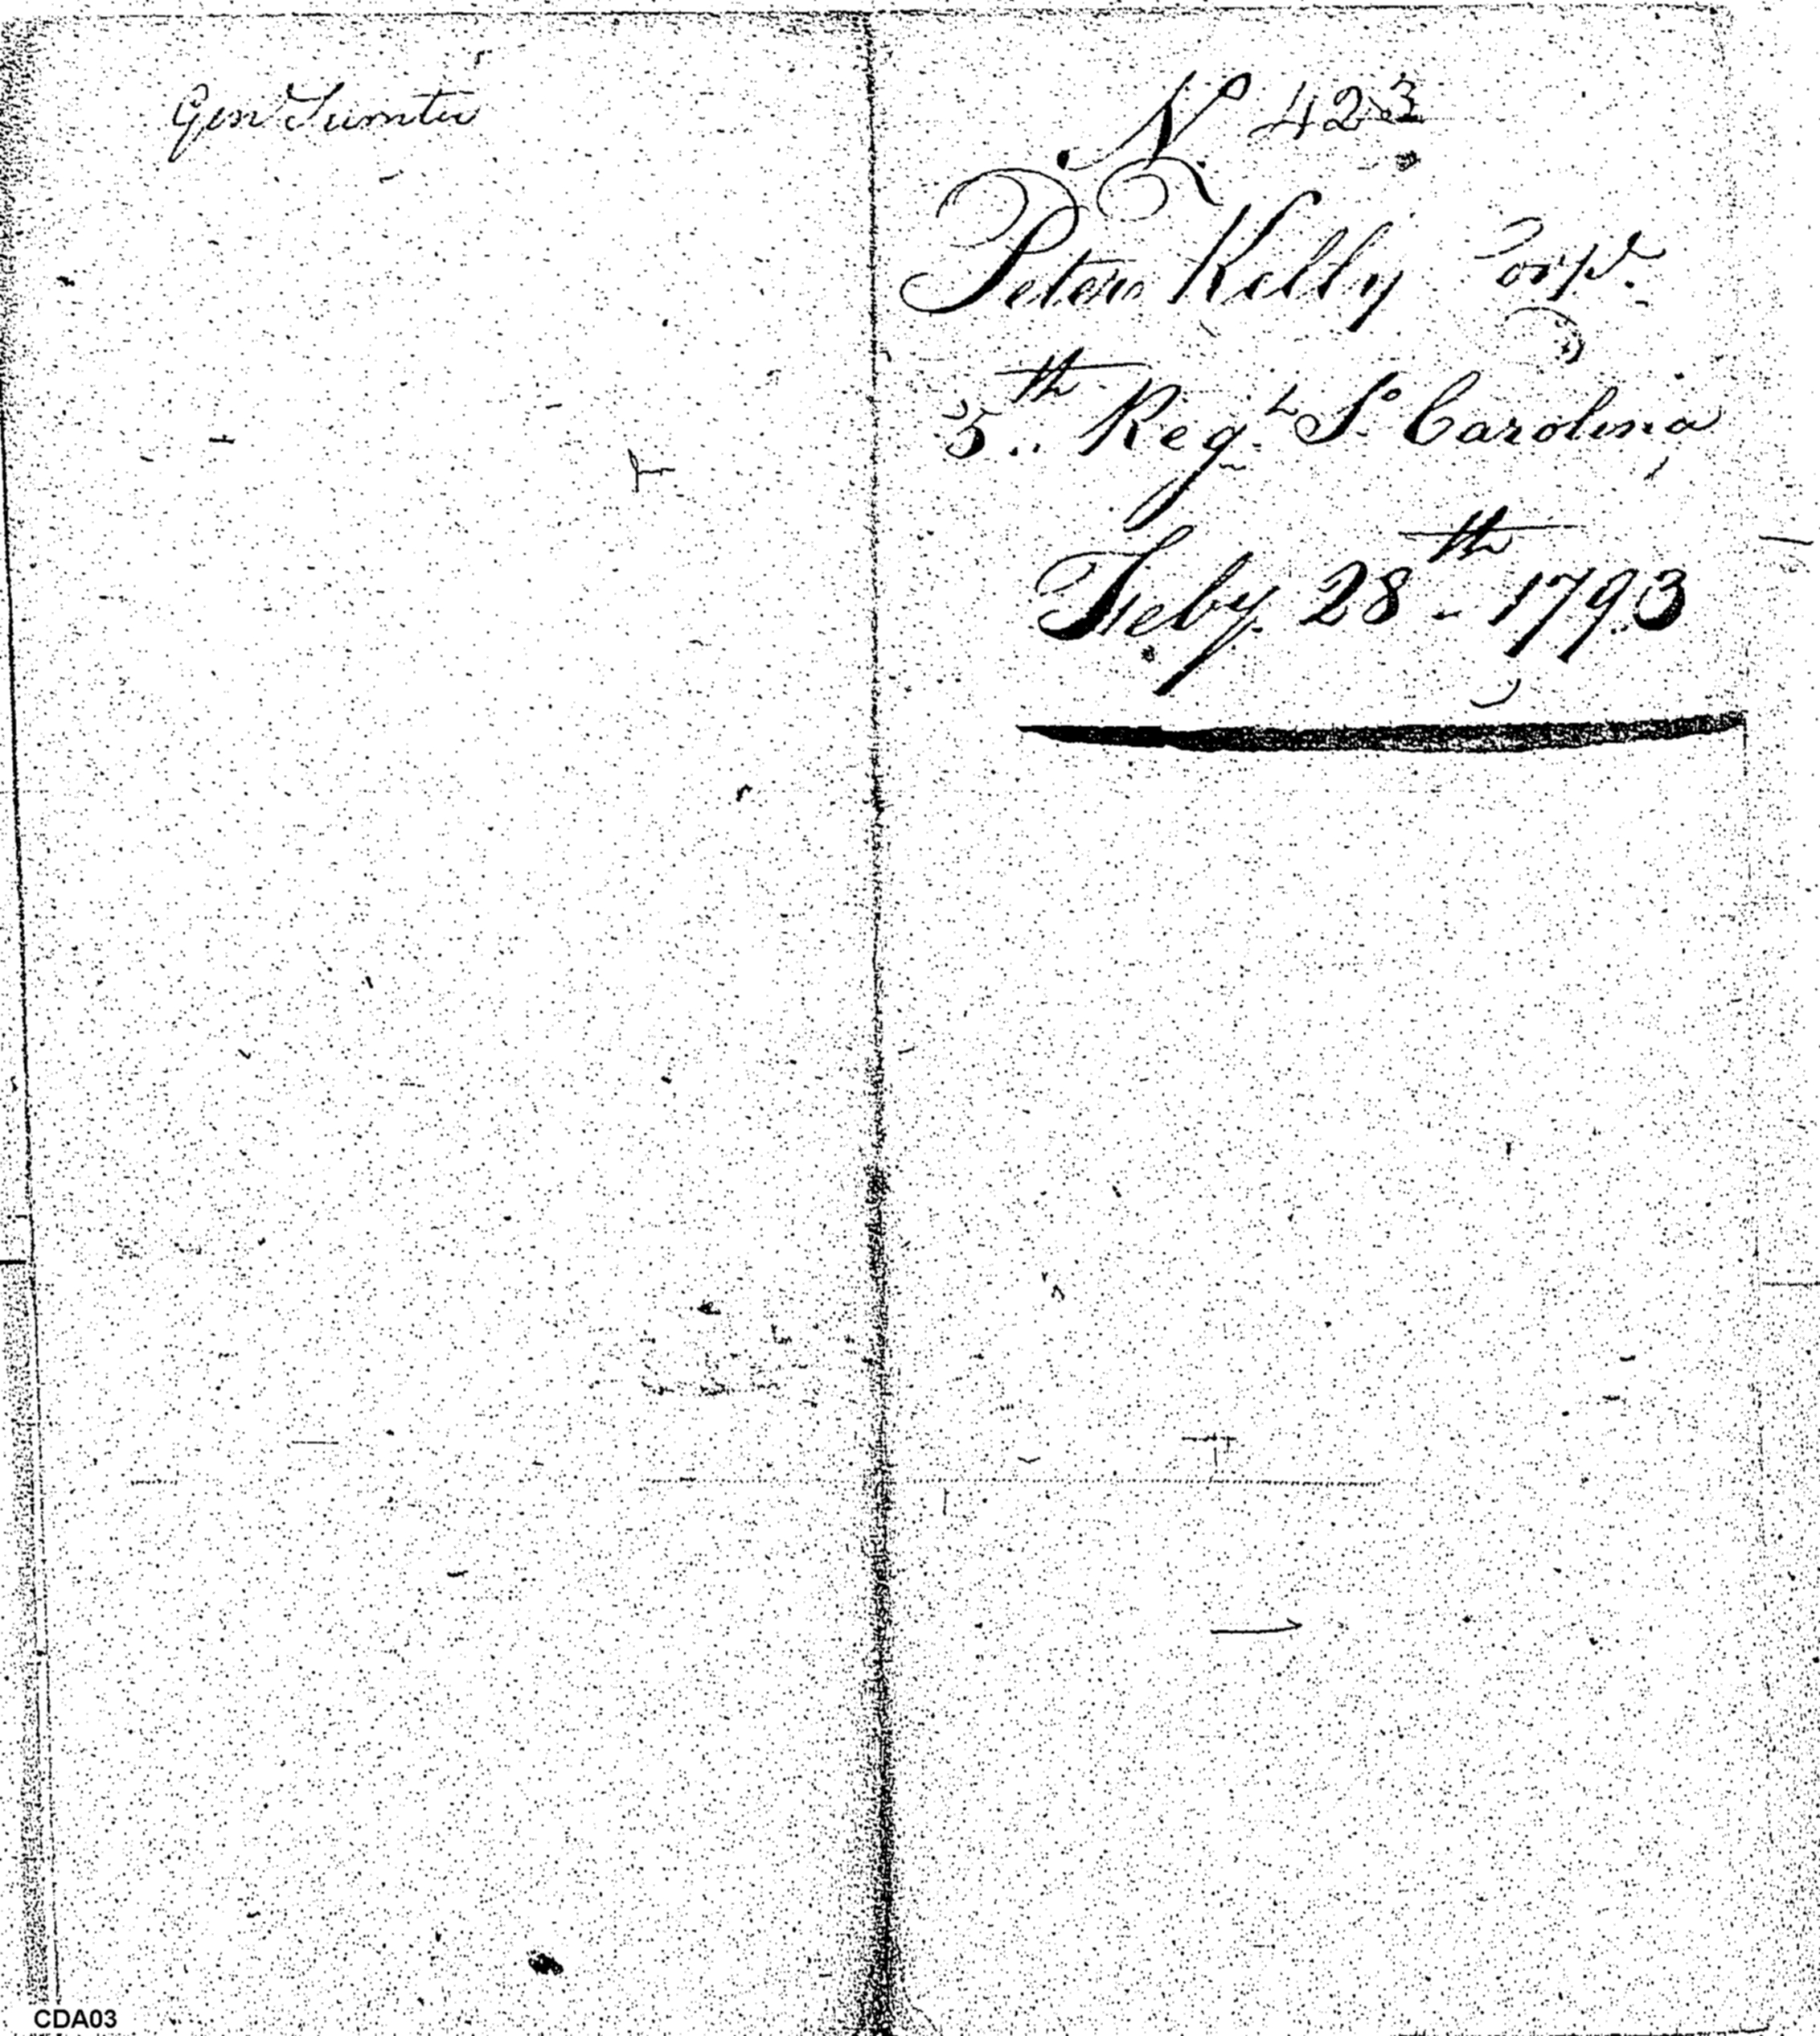 Genl Sumter
No. 423
Peter Kelly Corpl.
5th.. Regt. So. Carolina
Feby. 28th - 1793
CDA03